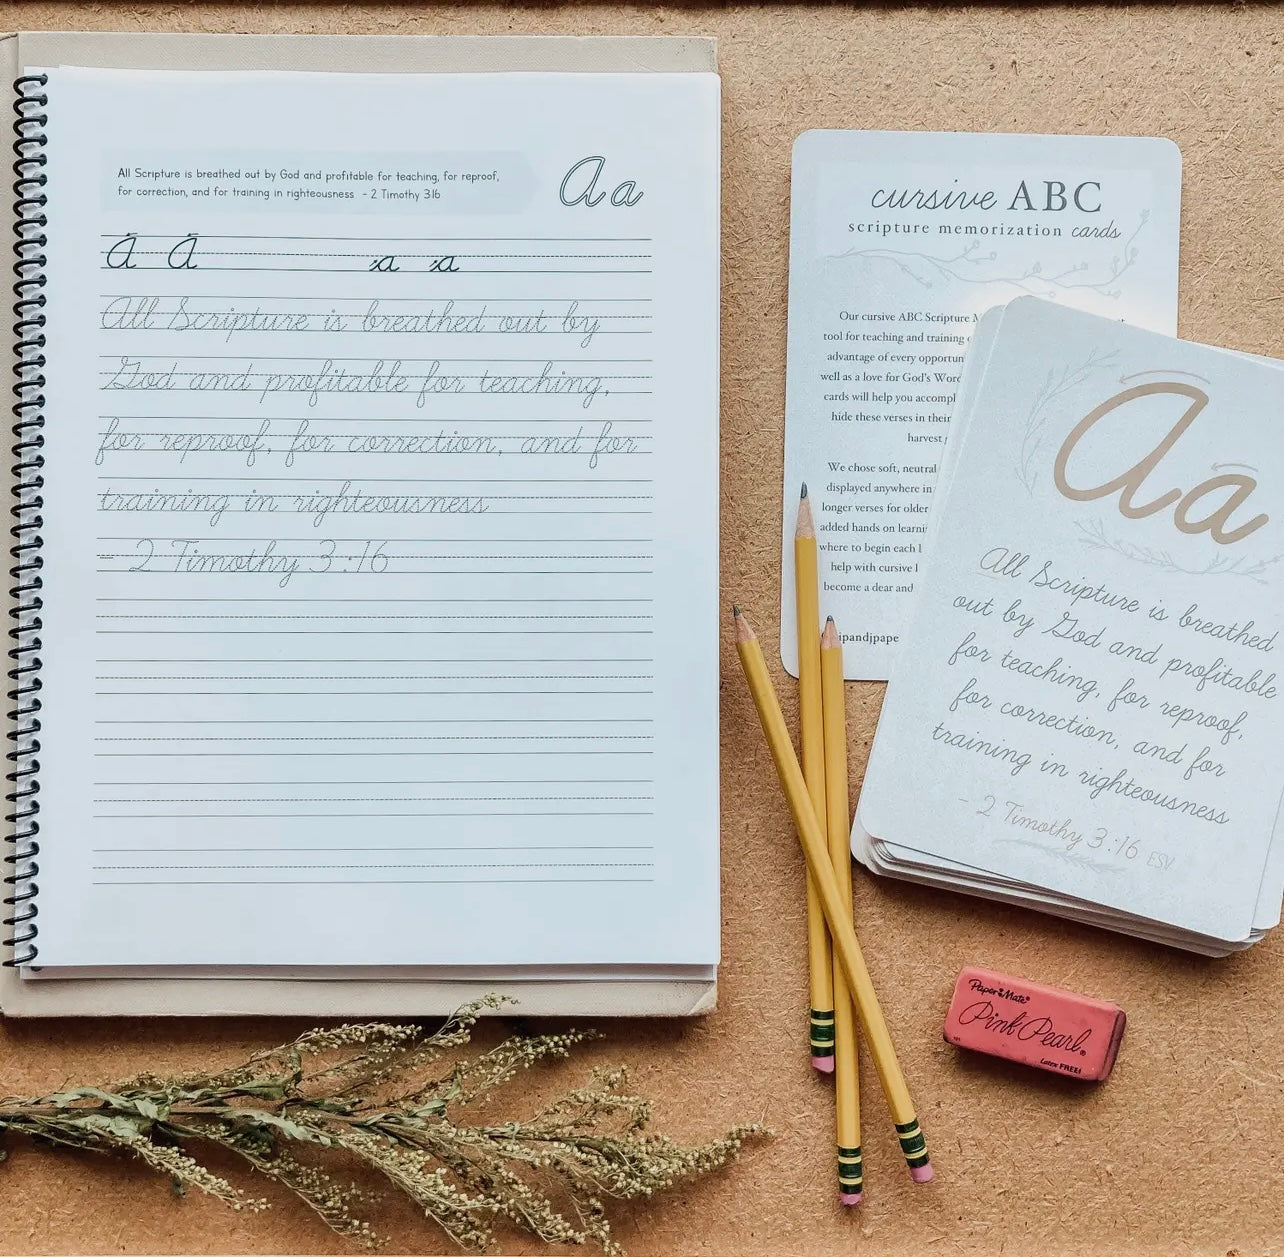 All Scripture is breathed out by God and profitable for teaching, for reproof,
for correction, and for training in righteousness - 2 Timothy 3:16
A a
A A a a
All Scripture is breathed out by
God and profitable for teaching,
for reproof, for correction, and for
training in righteousness
- 2 Timothy 3:16
cursive ABC
scripture memorization cards
Our cursive ABC Scripture
tool for teaching and training
advantage of every
well as a love for God's Word
cards will help you
hide these verses in their
harvest
We chose soft, neutral
displayed anywhere in
longer verses for older
added hands on
where to begin each
help with cursive
become a dear and
Aa
All Scripture is breathed
out by God and profitable
for teaching, for reproof,
for correction, and for
training in righteousness
- 2 Timothy 3:16 ESV
Paper Mate®
Pink Pearl®
Latex FREE!